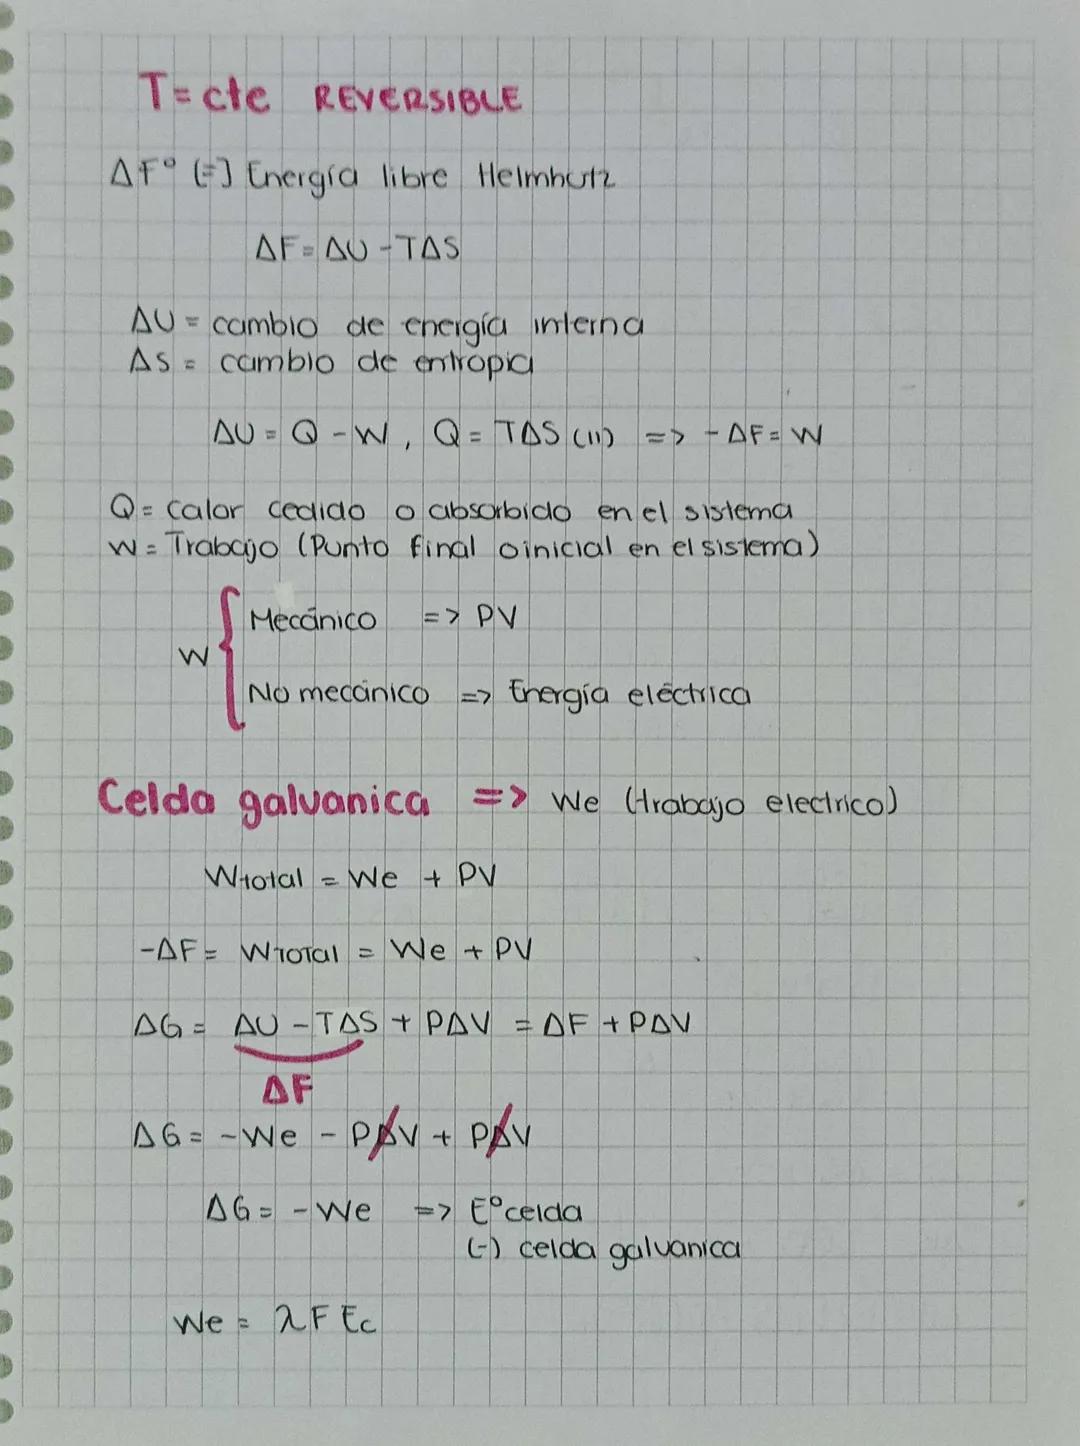 T=cte REVERSIBLE
ΔF° [=] Energía libre Helmhutz
ΔF = ΔU - TΔS
ΔU = cambio de energía interna
ΔS = cambio de entropia
ΔU = Q - W, Q = TΔS (11) => -ΔF = W
Q = Calor cedido o absorbido en el sistema
W = Trabajo (Punto final o inicial en el sistema)
W { Mecánico => PV
No mecánico => Energía eléctrica
Celda galvanica => We (trabajo electrico)
Wtotal = We + PV
-ΔF = WTOTal = We + PV
ΔG = ΔU - TΔS + PΔV = ΔF + PΔV
ΔF
ΔG = -We - PΔV + PΔV
ΔG = -We => E°celda
(-) celda galvanica
We = λF Ec